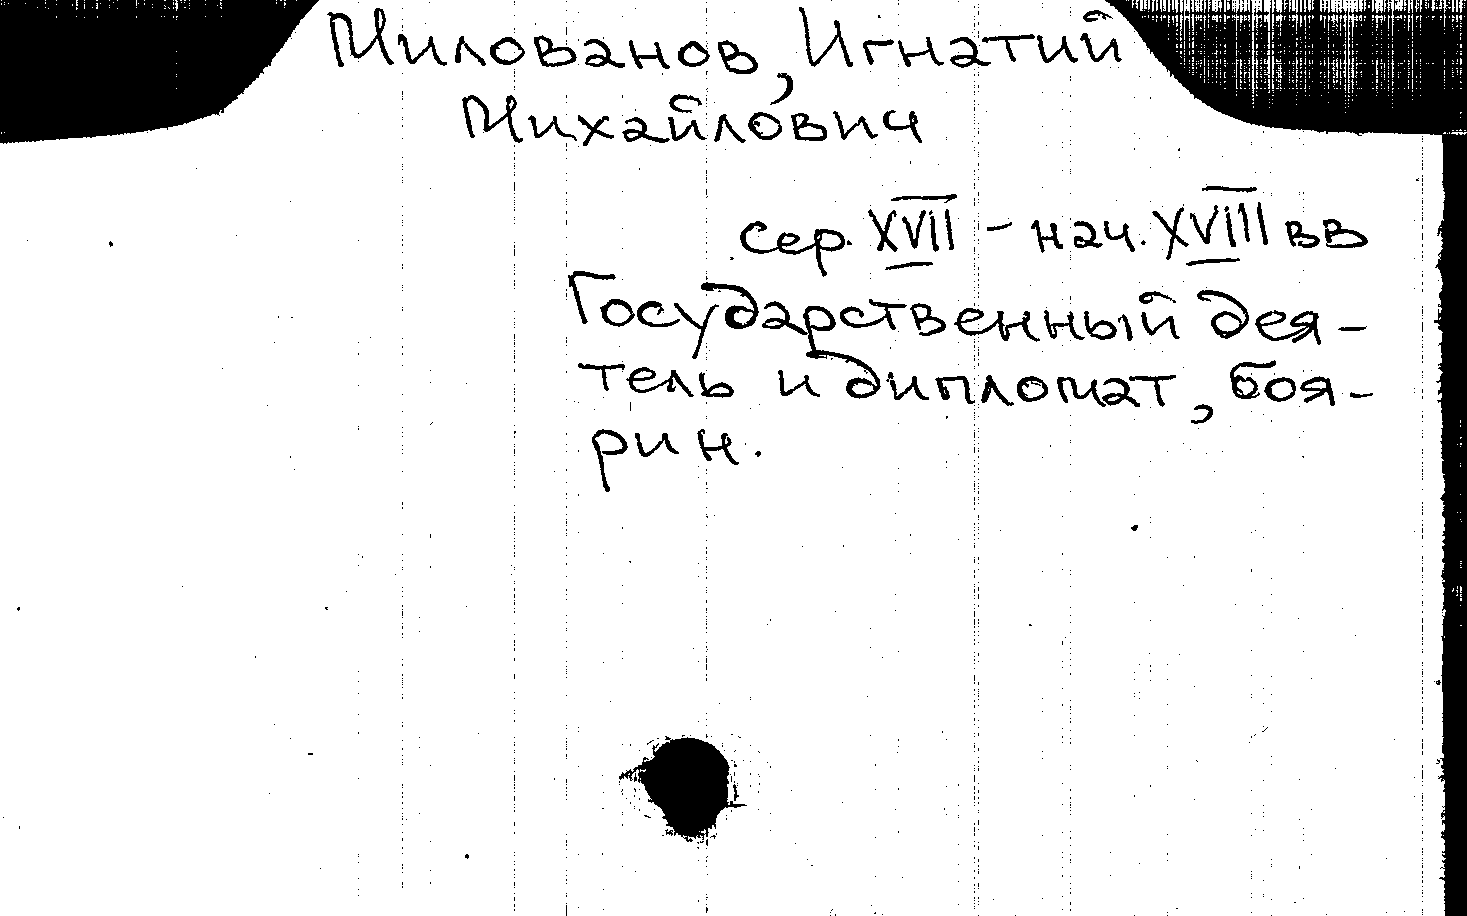 Милованов, Игнатий
Михайлович
сер. XVII - нач. XVIII вв
Государственный дея-
тель и дипломат, боя-
рин.